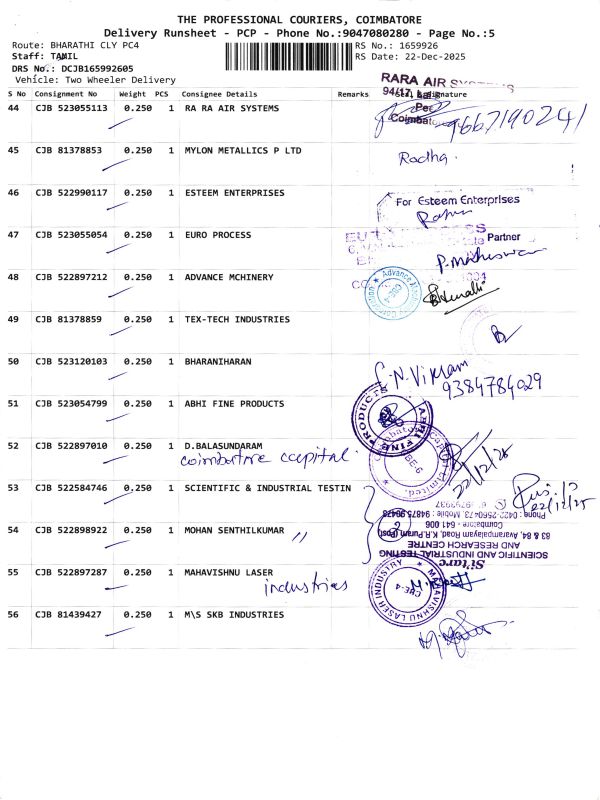 THE PROFESSIONAL COURIERS, COIMBATORE
Delivery Runsheet - PCP - Phone No.:9047080280 - Page No.:5
Route: BHARATHI CLY PC4
RS No.: 1659926
Staff: TAMIL
RS Date: 22-Dec-2025
DRS No.: DCJB165992605
Vehicle: Two Wheeler Delivery
RARA AIR SYSTEMS
S No Consignment No Weight PCS Consignee Details Remarks Seal & Signature
44 CJB 523055113 0.250 1 RA RA AIR SYSTEMS
9667190241
45 CJB 81378853 0.250 1 MYLON METALLICS P LTD
Radha.
46 CJB 522990117 0.250 1 ESTEEM ENTERPRISES
For Esteem Enterprises
47 CJB 523055054 0.250 1 EURO PROCESS
Partner
48 CJB 522897212 0.250 1 ADVANCE MCHINERY
49 CJB 81378859 0.250 1 TEX-TECH INDUSTRIES
50 CJB 523120103 0.250 1 BHARANIHARAN
N. Vikram
9384784029
51 CJB 523054799 0.250 1 ABHI FINE PRODUCTS
ABHI FINE PRODUCTS
52 CJB 522897010 0.250 1 D.BALASUNDARAM
coimbatore capital.
22/12/25
53 CJB 522584746 0.250 1 SCIENTIFIC & INDUSTRIAL TESTIN
22/12/25
54 CJB 522898922 0.250 1 MOHAN SENTHILKUMAR "
Si'tarc
SCIENTIFIC AND INDUSTRIAL TESTING
AND RESEARCH CENTRE
83 & 84, Avarampalayam Road, K.R.Puram (Post)
Coimbatore - 641 006
55 CJB 522897287 0.250 1 MAHAVISHNU LASER
industries
MAHAVISHNU LASER INDUSTRY
CBE-4
56 CJB 81439427 0.250 1 M\S SKB INDUSTRIES